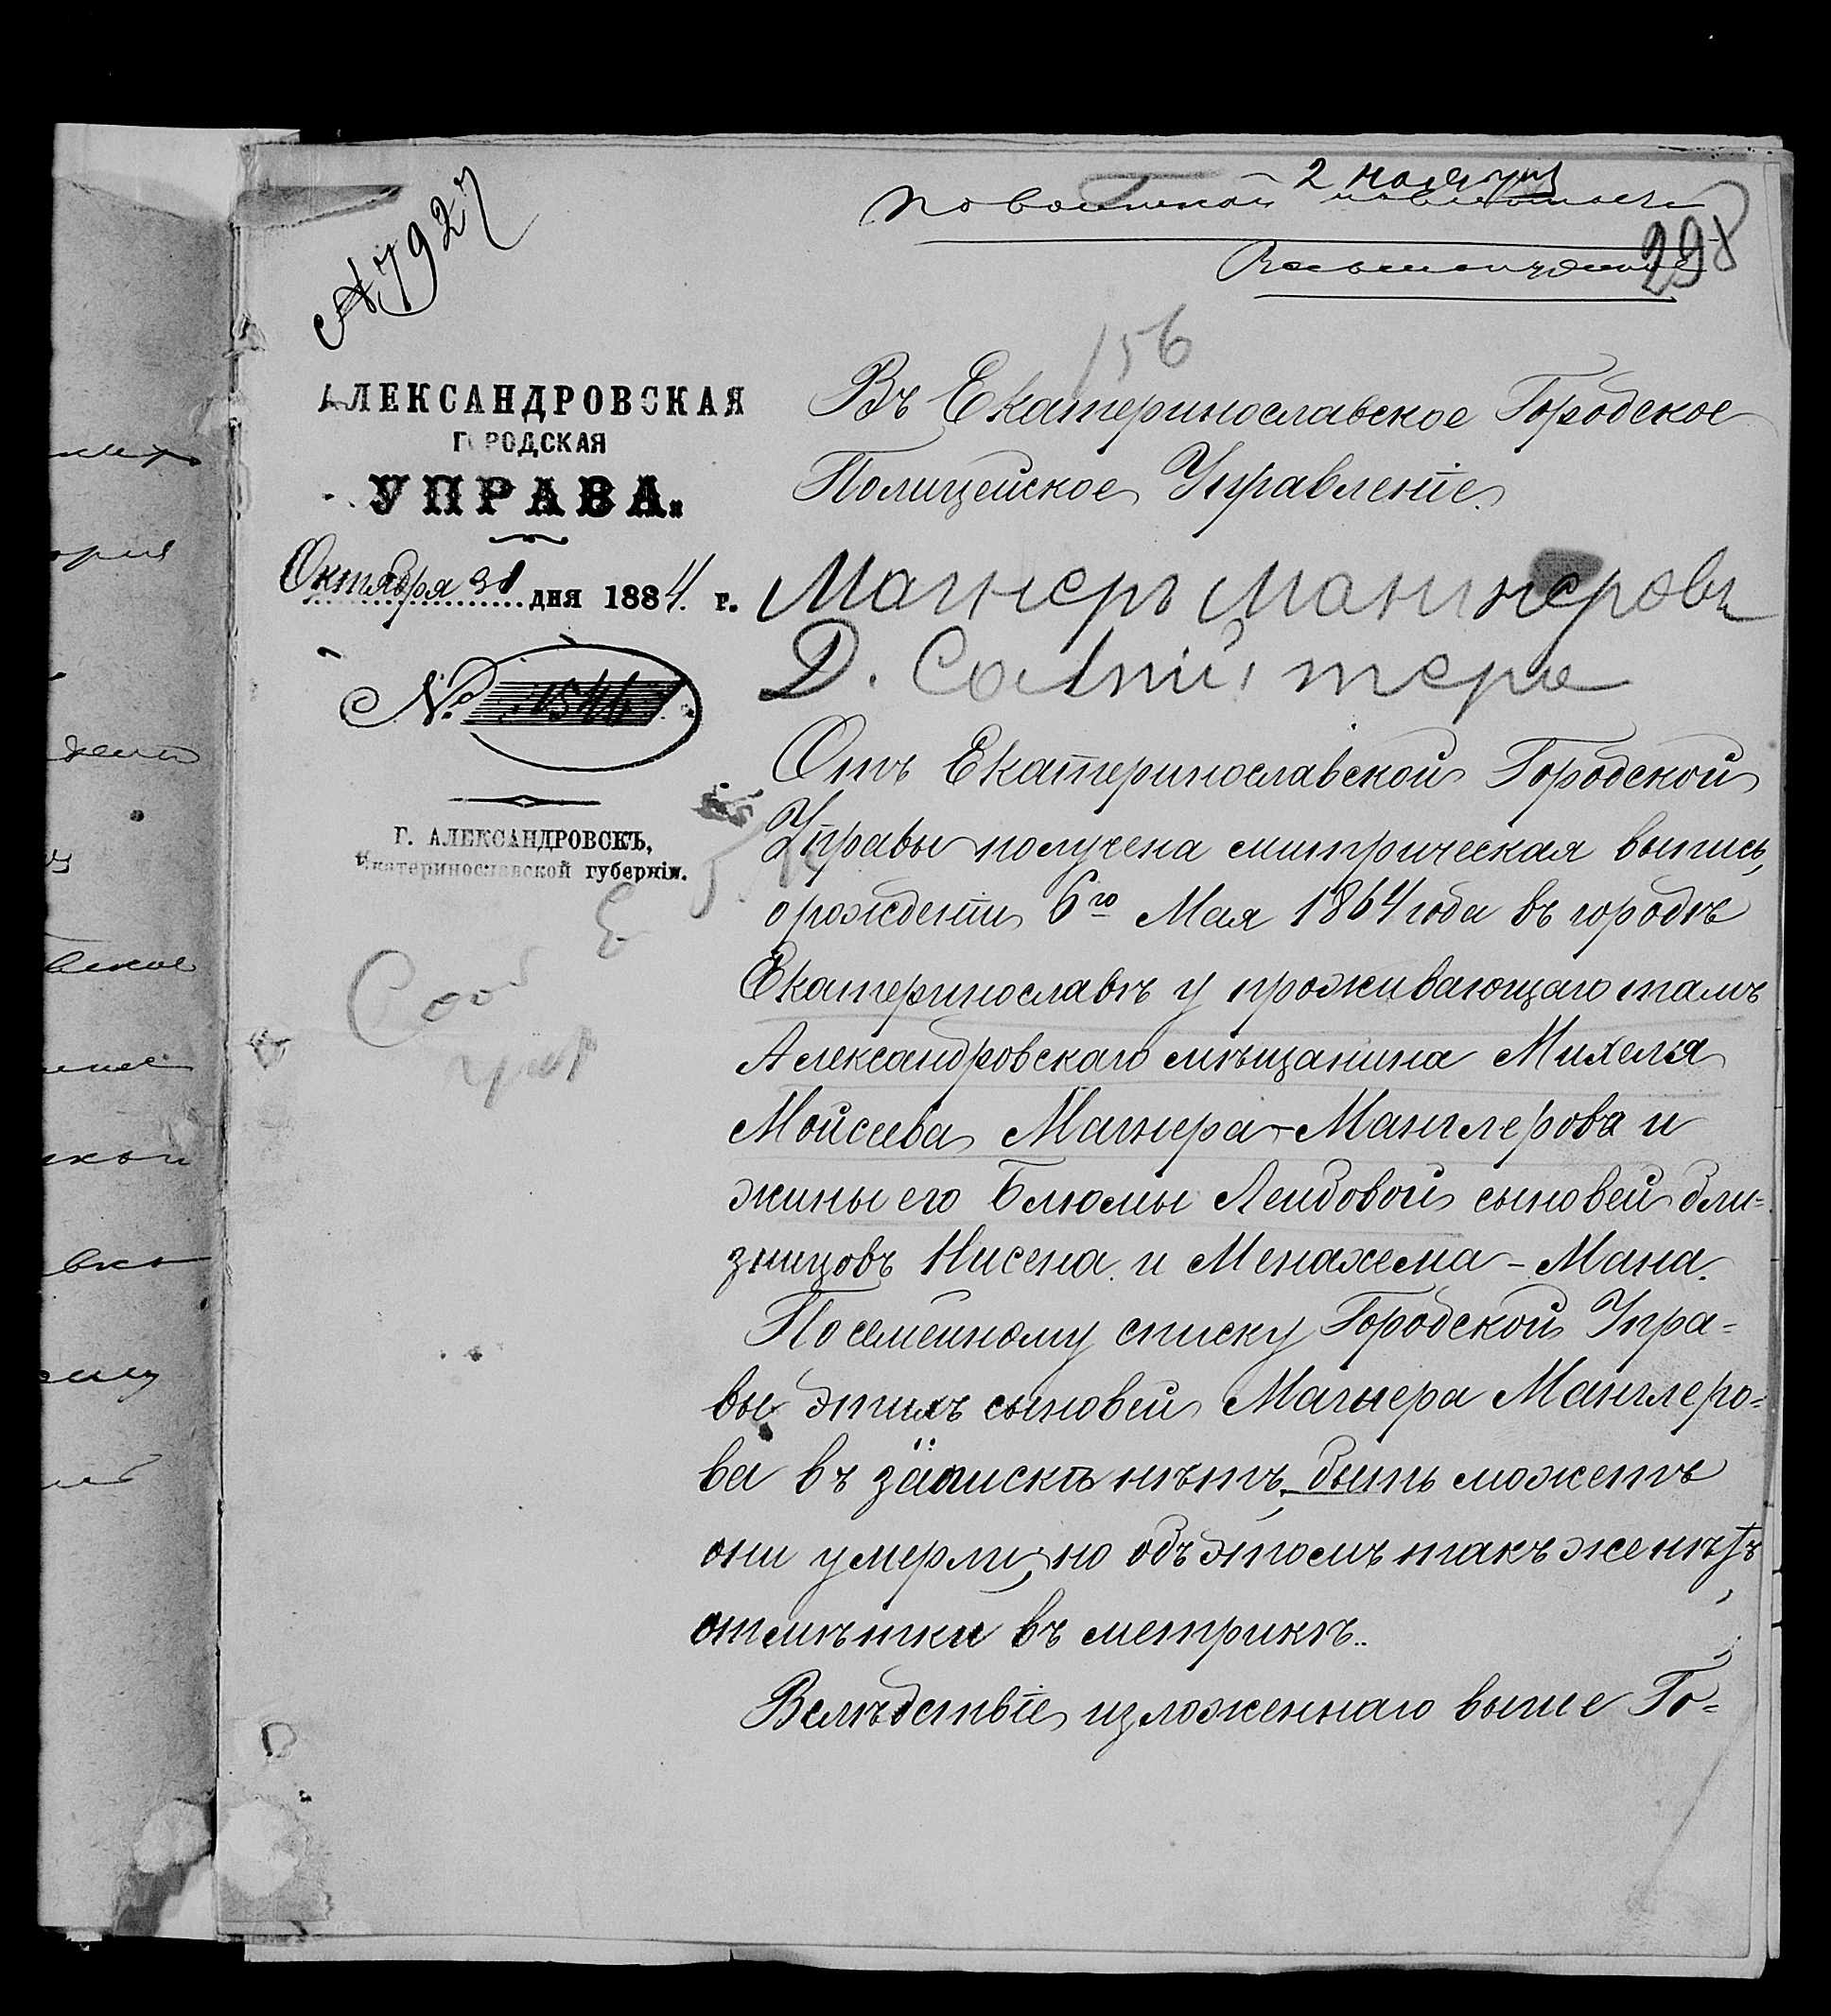 № 7927
2 ноября
По воинской повинности
298
156
АЛЕКСАНДРОВСКАЯ
ГОРОДСКАЯ
УПРАВА.
Октября 31 дня 1884. г.
№
Г. АЛЕКСАНДРОВСКЪ,
Екатеринославской губерніи.
Въ Екатеринославское Городское
Полицейское Управленіе.
Магнеръ Манглеровъ
Отъ Екатеринославской Городской
Управы получена митрическая выпись,
о рожденіи 6го Мая 1864 года въ городѣ
Екатеринославѣ у проживающаго тамъ
Александровскаго мѣщанина Михеля
Мойсеева Магнера-Манглерова и
жины его Блюмы Лейбовой сыновей бли=
зницовъ Нисена и Менахема-Мана.
По семейному списку Городской Упра=
вы этихъ сыновей Магнера Манглеро=
ва въ запискѣ нѣтъ, быть можетъ
они умерли, но объ этомъ такъ же нѣтъ
отмѣтки въ метрикѣ..
Вслѣдствіе изложеннаго выше Го=